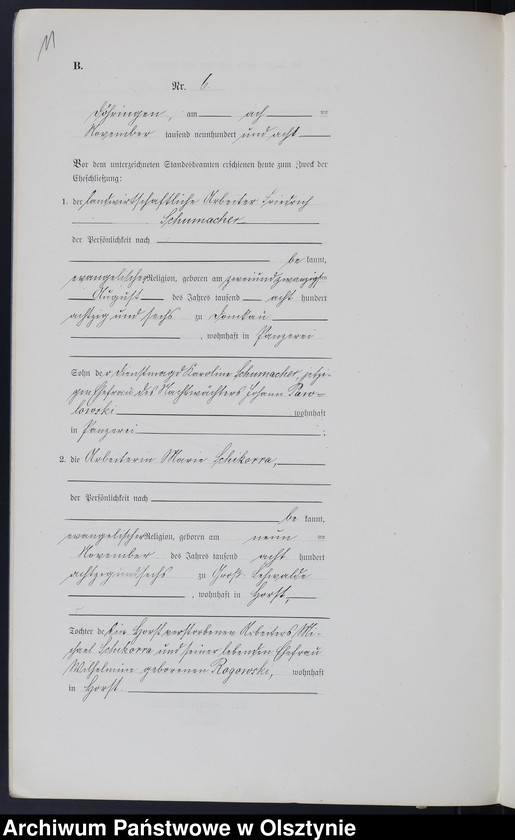 11
B.
Nr. 6
Döhringen, am ach =
November tausend neunhundert und acht
Vor dem unterzeichneten Standesbeamten erschienen heute zum Zweck der
Eheschließung:
1. der landwirtschaftliche Arbeiter Friedrich
Schumacher
der Persönlichkeit nach
be kannt,
evangelischer Religion, geboren am zweiundzwanzigsten
August des Jahres tausend acht hundert
achtzig und sechs zu Domkau
, wohnhaft in Panzerei
Sohn der Dienstmagd Karoline Schumacher, jetzi-
gen Ehefrau des Nachtwächters Johann Paw-
lowski wohnhaft
in Panzerei ;
2. die Arbeiterin Marie Schikorra,
der Persönlichkeit nach
be kannt,
evangelischer Religion, geboren am neun =
November des Jahres tausend acht hundert
achtzig und sechs zu Lehwalde
, wohnhaft in Horst,
Tochter des in Horst verstorbenen Arbeiters Mi-
chael Schikorra und seiner lebenden Ehefrau
Wilhelmine geborenen Rogowski, wohnhaft
in Horst
Archiwum Państwowe w Olsztynie